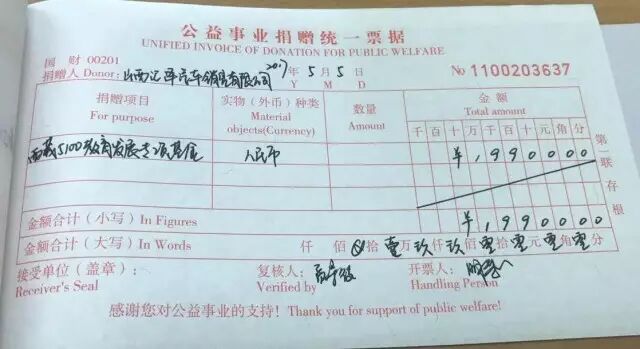 公益事业捐赠统一票据
UNIFIED INVOICE OF DONATION FOR PUBLIC WELFARE
国 财 00201
捐赠人 Donor: 山西汇泽汽车销售有限公司 2017年 5月 5日
Y M D
No 1100203637
捐赠项目 实物（外币）种类 数量 金额
For purpose Material objects(Currency) Amount Total amount
千 百 十 万 千 百 十 元 角 分
西藏5100教育发展专项基金 人民币 ¥ 1 9 9 0 0 0 0
金额合计（小写）In Figures ¥ 1 9 9 0 0 0 0
金额合计（大写）In Words 仟 佰 拾 壹万 玖仟 玖佰 零拾 零元 零角 零分
接受单位（盖章）： 复核人： 开票人：
Receiver's Seal Verified by Handling Person
感谢您对公益事业的支持！ Thank you for support of public welfare!
第一联 存根